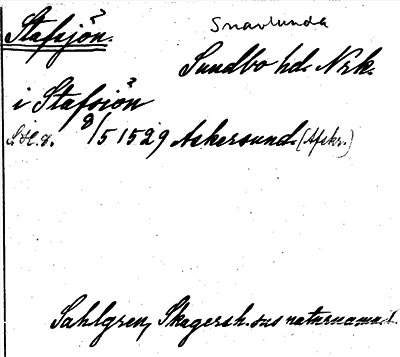 Stafsjön.?
Snavlunda
Sundbo hd. Nrk.
i Stafsiön?
8/5 1529 Askersund. (Afskr.)
Sahlgren, Skagersh. sns naturnamn